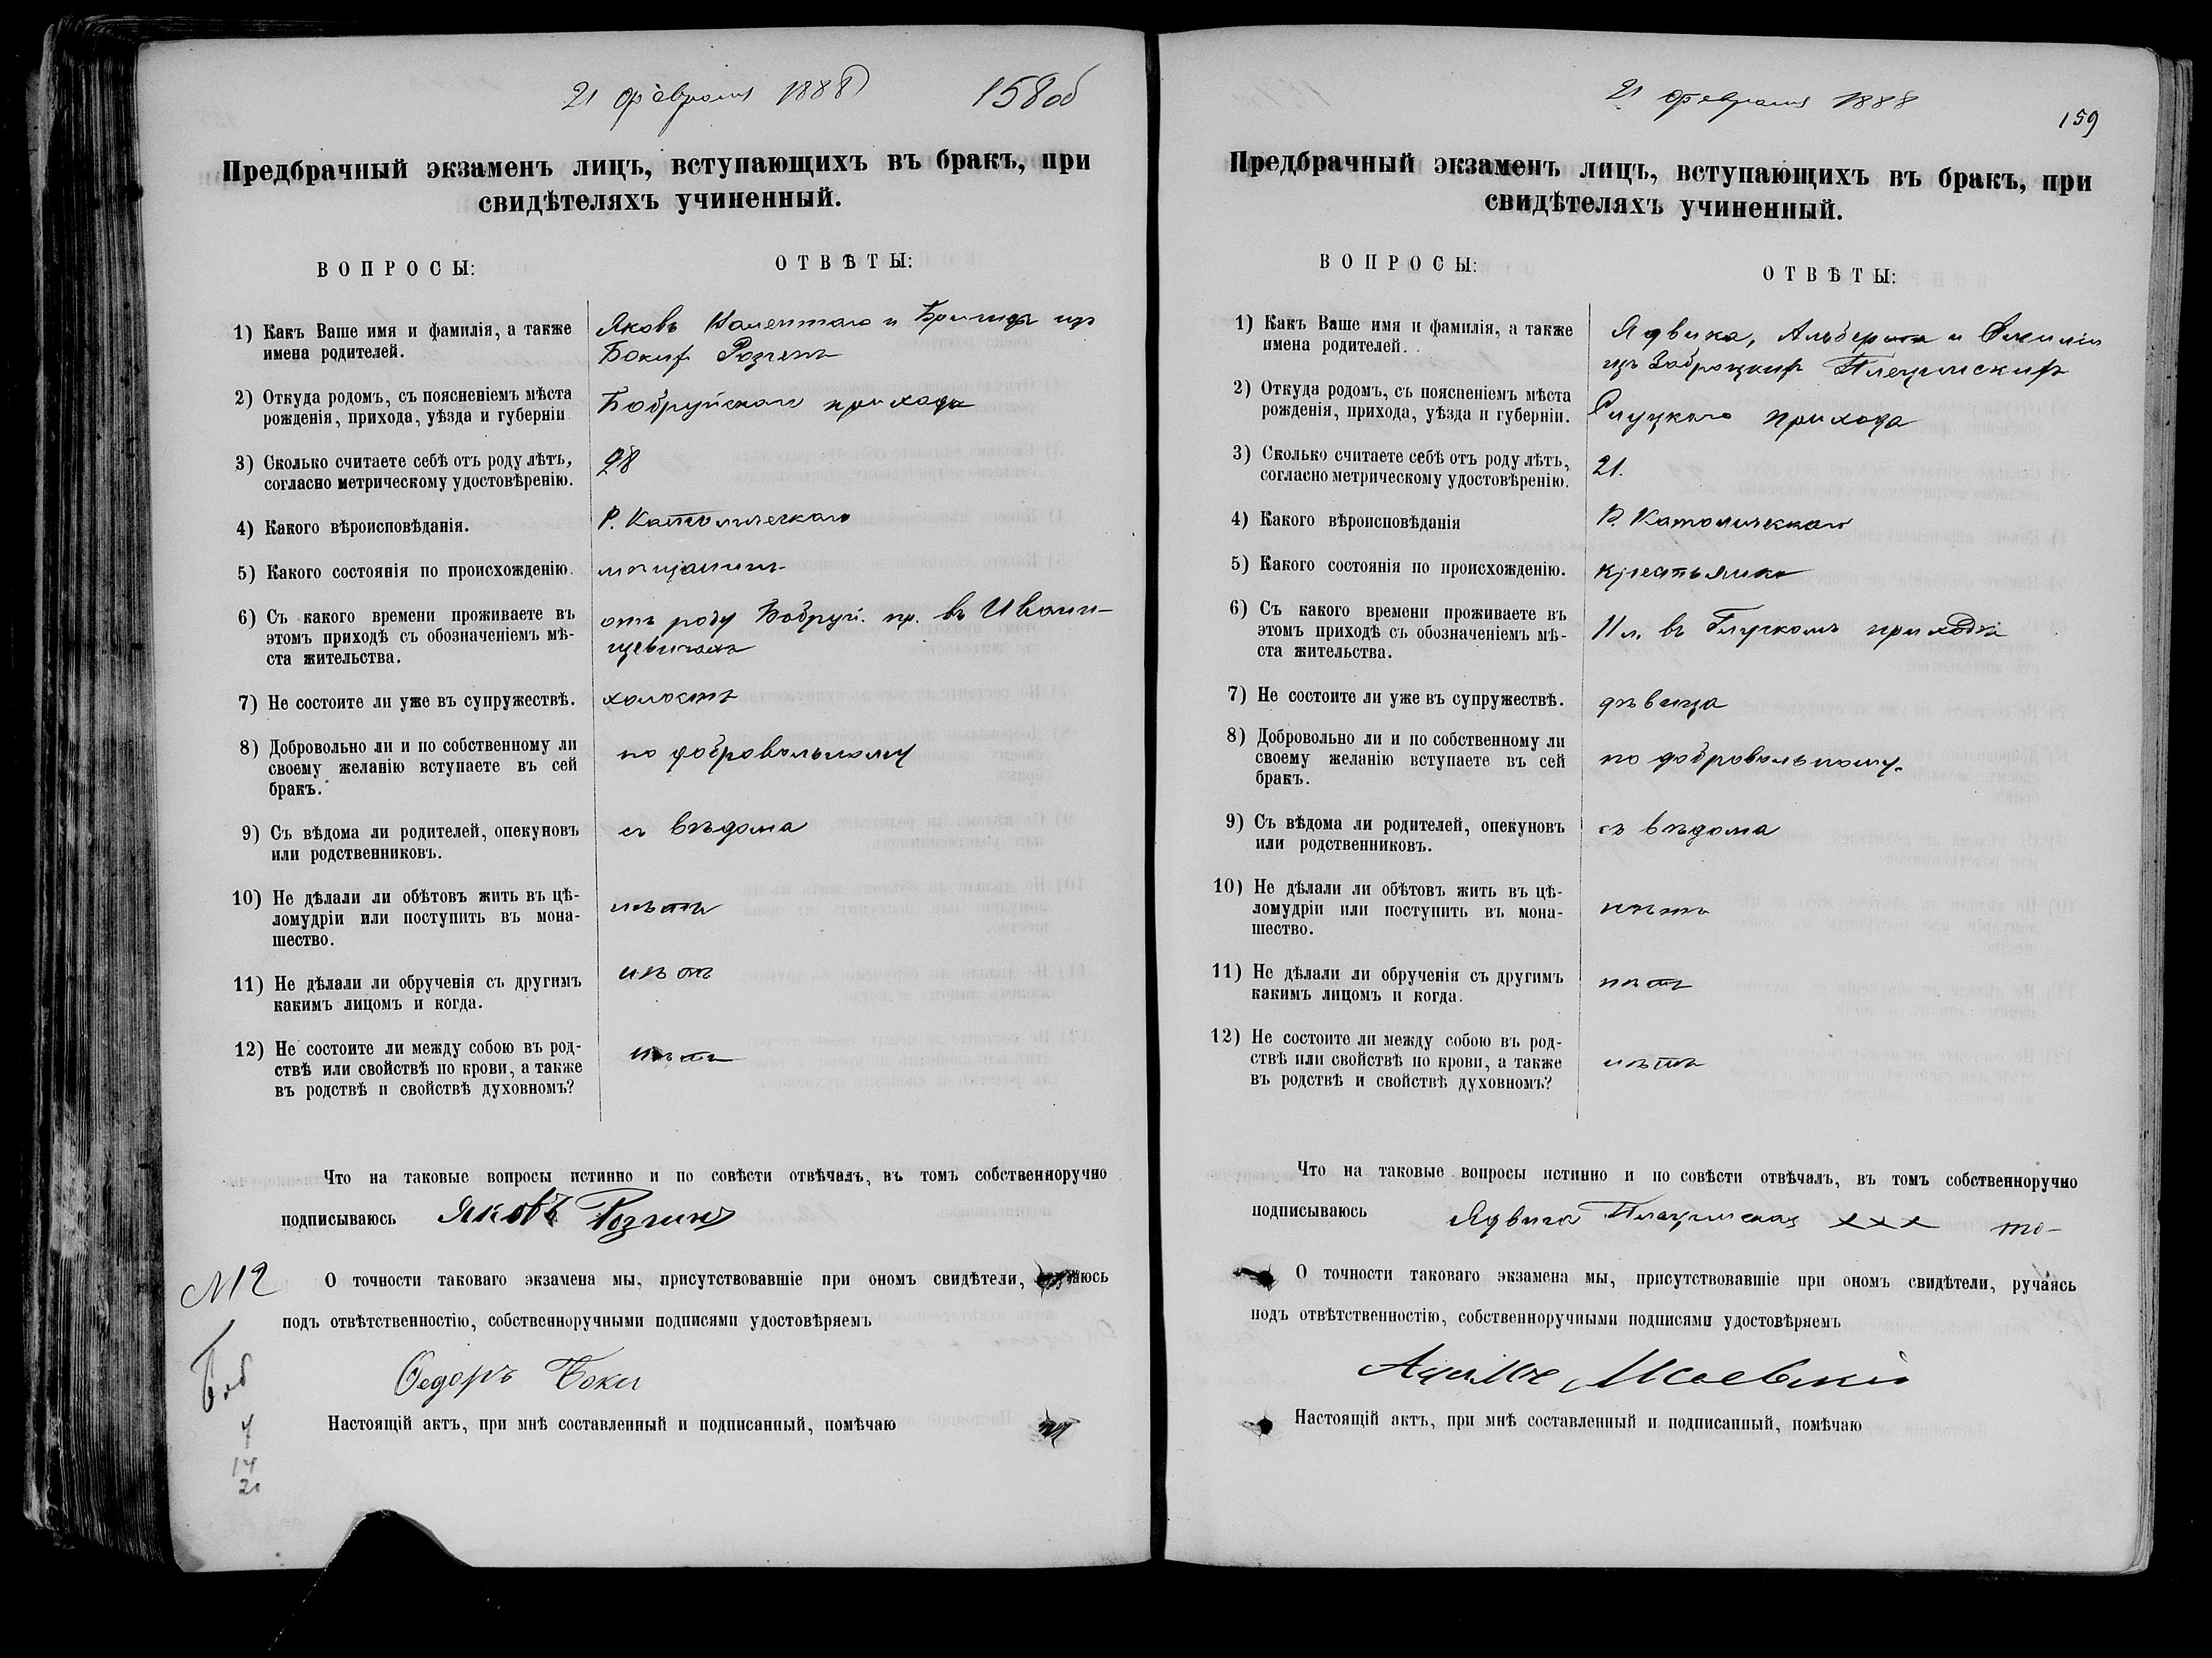 21 февраля 1888
158об
Предбрачный экзаменъ лицъ, вступающихъ въ бракъ, при
свидѣтеляхъ учиненный.
ВОПРОСЫ:
ОТВѢТЫ:
1) Какъ Ваше имя и фамилія, а также
имена родителей.
Яковъ и Бригида изъ
Бокиф
2) Откуда родомъ, съ поясненіемъ мѣста
рожденія, прихода, уѣзда и губерніи
Бобруйскаго прихода
3) Сколько считаете себѣ отъ роду лѣтъ,
согласно метрическому удостовѣренію.
28
4) Какого вѣроисповѣданія.
Р. Католическаго
5) Какого состоянія по происхожденію.
мѣщанинъ
6) Съ какого времени проживаете въ
этомъ приходѣ съ обозначеніемъ мѣ-
ста жительства.
отъ роду Бобруй. пр. въ Ивани-
щевичахъ
7) Не состоите ли уже въ супружествѣ.
холостъ
8) Добровольно ли и по собственному ли
своему желанію вступаете въ сей
бракъ.
по добровольному
9) Съ вѣдома ли родителей, опекуновъ
или родственниковъ.
съ вѣдома
10) Не дѣлали ли обѣтовъ жить въ цѣ-
ломудріи или поступить въ мона-
шество.
нѣтъ
11) Не дѣлали ли обрученія съ другимъ
какимъ лицомъ и когда.
нѣтъ
12) Не состоите ли между собою въ род-
ствѣ или свойствѣ по крови, а также
въ родствѣ и свойствѣ духовномъ?
нѣтъ
Что на таковые вопросы истинно и по совѣсти отвѣчалъ, въ томъ собственноручно
подписываюсь Яковъ Розгинъ
№12
О точности таковаго экзамена мы, присутствовавшіе при ономъ свидѣтели,
подъ отвѣтственностію, собственноручными подписями удостовѣряемъ
Боб
Ѳедоръ Боки
4
Настоящій актъ, при мнѣ составленный и подписанный, помѣчаю
14
21 февраля 1888
159
Предбрачный экзаменъ лицъ, вступающихъ въ бракъ, при
свидѣтеляхъ учиненный.
ВОПРОСЫ:
ОТВѢТЫ:
1) Какъ Ваше имя и фамилія, а также
имена родителей.
Ядвига, Альберта и Эмиліи
изъ
2) Откуда родомъ, съ поясненіемъ мѣста
рожденія, прихода, уѣзда и губерніи.
Слуцкаго прихода
3) Сколько считаете себѣ отъ роду лѣтъ,
согласно метрическому удостовѣренію.
21.
4) Какого вѣроисповѣданія
Р. Католическаго
5) Какого состоянія по происхожденію.
крестьянка
6) Съ какого времени проживаете въ
этомъ приходѣ съ обозначеніемъ мѣ-
ста жительства.
11 л. въ Глускомъ приходѣ
7) Не состоите ли уже въ супружествѣ.
дѣвица
8) Добровольно ли и по собственному ли
своему желанію вступаете въ сей
бракъ.
по добровольному.
9) Съ вѣдома ли родителей, опекуновъ
или родственниковъ.
съ вѣдома
10) Не дѣлали ли обѣтовъ жить въ цѣ-
ломудріи или поступить въ мона-
шество.
нѣтъ
11) Не дѣлали ли обрученія съ другимъ
какимъ лицомъ и когда.
нѣтъ
12) Не состоите ли между собою въ род-
ствѣ или свойствѣ по крови, а также
въ родствѣ и свойствѣ духовномъ?
нѣтъ
Что на таковые вопросы истинно и по совѣсти отвѣчалъ, въ томъ собственноручно
подписываюсь Ядвига xxx
О точности таковаго экзамена мы, присутствовавшіе при ономъ свидѣтели, ручаясь
подъ отвѣтственностію, собственноручными подписями удостовѣряемъ
Адамъ
Настоящій актъ, при мнѣ составленный и подписанный, помѣчаю